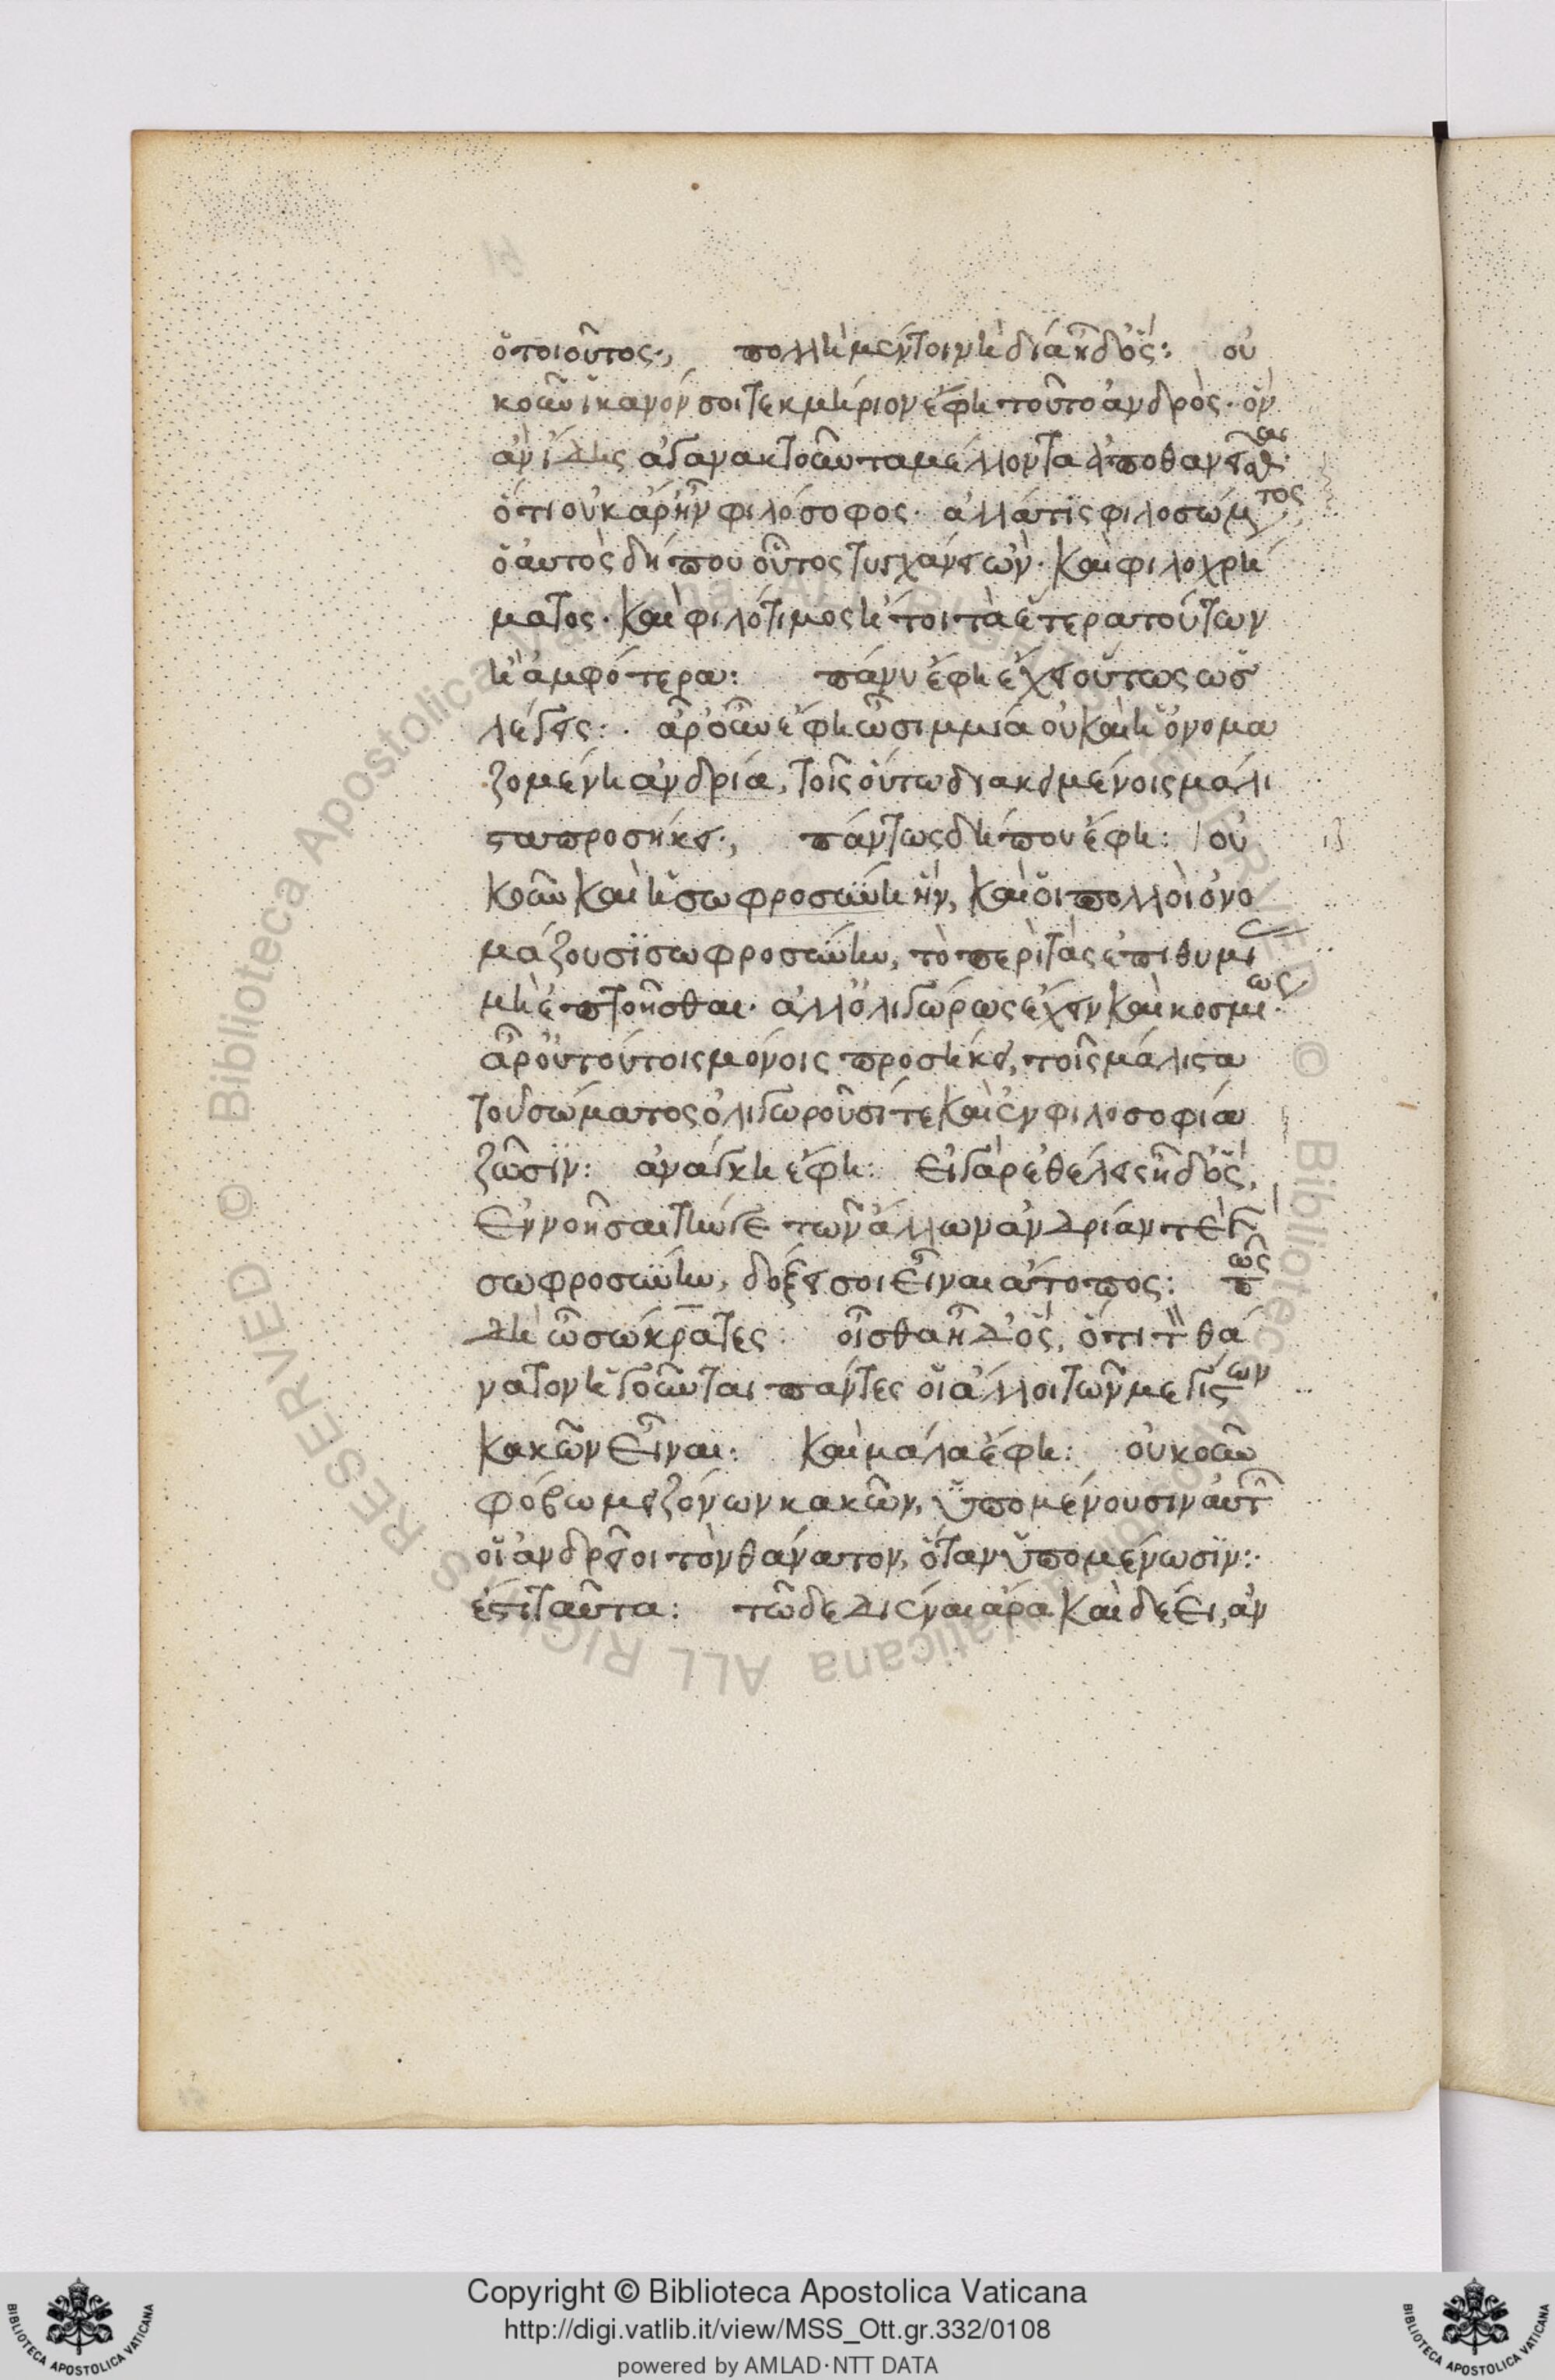 ὁ τοιοῦτος., πολλὴ μέντοι νὴ δία ἦ δ' ὅς: οὐ
κοῦν ἱκανόν σοι τεκμήριον ἔφη τοῦτο ἀνδρὸς· ὃν
ἂν ἴδης ἀγανακτοῦντα μέλλοντα ἀποθανεῖσθαι·
ὅτι οὐκ ἄρ' ἦν φιλόσοφος· ἀλλά τις φιλοσώματος
ὁ αὐτὸς δή που οὗτος τυγχάνει ὢν· καὶ φιλοχρή
ματος· καὶ φιλότιμος ἤτοι τὰ ἕτερα τούτων
ἢ ἀμφότερα: πάνυ ἔφη ἔχει οὕτως ὡς
λέγεις: ἆρ' οὖν ἔφη ὦ σιμμία οὐ καὶ ἡ ὀνομα
ζομένη ἀνδρία, τοῖς οὕτω διακειμένοις μάλι
στα προσήκει., πάντως δή που ἔφη: οὐ
κοῦν καὶ ἡ σωφροσύνη ἣν, καὶ οἱ πολλοὶ ὀνο
μάζουσι σωφροσύνην, τὸ περὶ τὰς ἐπιθυμί
μὴ ἐπτοῆσθαι· ἀλλ' ὀλιγώρως ἔχειν καὶ κοσμίως·
ἆρ' οὐ τούτοις μόνοις προσήκει, τοῖς μάλιστα
τοῦ σώματος ὀλιγωροῦσί τε καὶ ἐν φιλοσοφία
ζῶσιν: ἀνάγκη ἔφη: εἰ γὰρ ἐθέλεις ἦ δ' ὅς,
ἐννοῆσαι τήν γε τῶν ἄλλων ἀνδρίαν τὲ καὶ
σωφροσύνην, δόξει σοι εἶναι ἄτοπος: πῶς
δὴ ὦ σώκρατες: οἶσθα ἦ δ' ὅς, ὅτι τὸν θά
νατον ἡγοῦνται πάντες οἱ ἄλλοι τῶν μεγίστων
κακῶν εἶναι: καὶ μάλα ἔφη: οὐκοῦν
φόβω μειζόνων κακῶν, ὑπομένουσιν αὐτῶν
οἱ ἀνδρεῖοι τὸν θάνατον, ὅταν ὑπομένωσιν:
ἔστι ταῦτα: τῶ δεδιέναι ἄρα καὶ δέει, ἀν
Copyright © Biblioteca Apostolica Vaticana
http://digi.vatlib.it/view/MSS_Ott.gr.332/0108
powered by AMLAD·NTT DATA